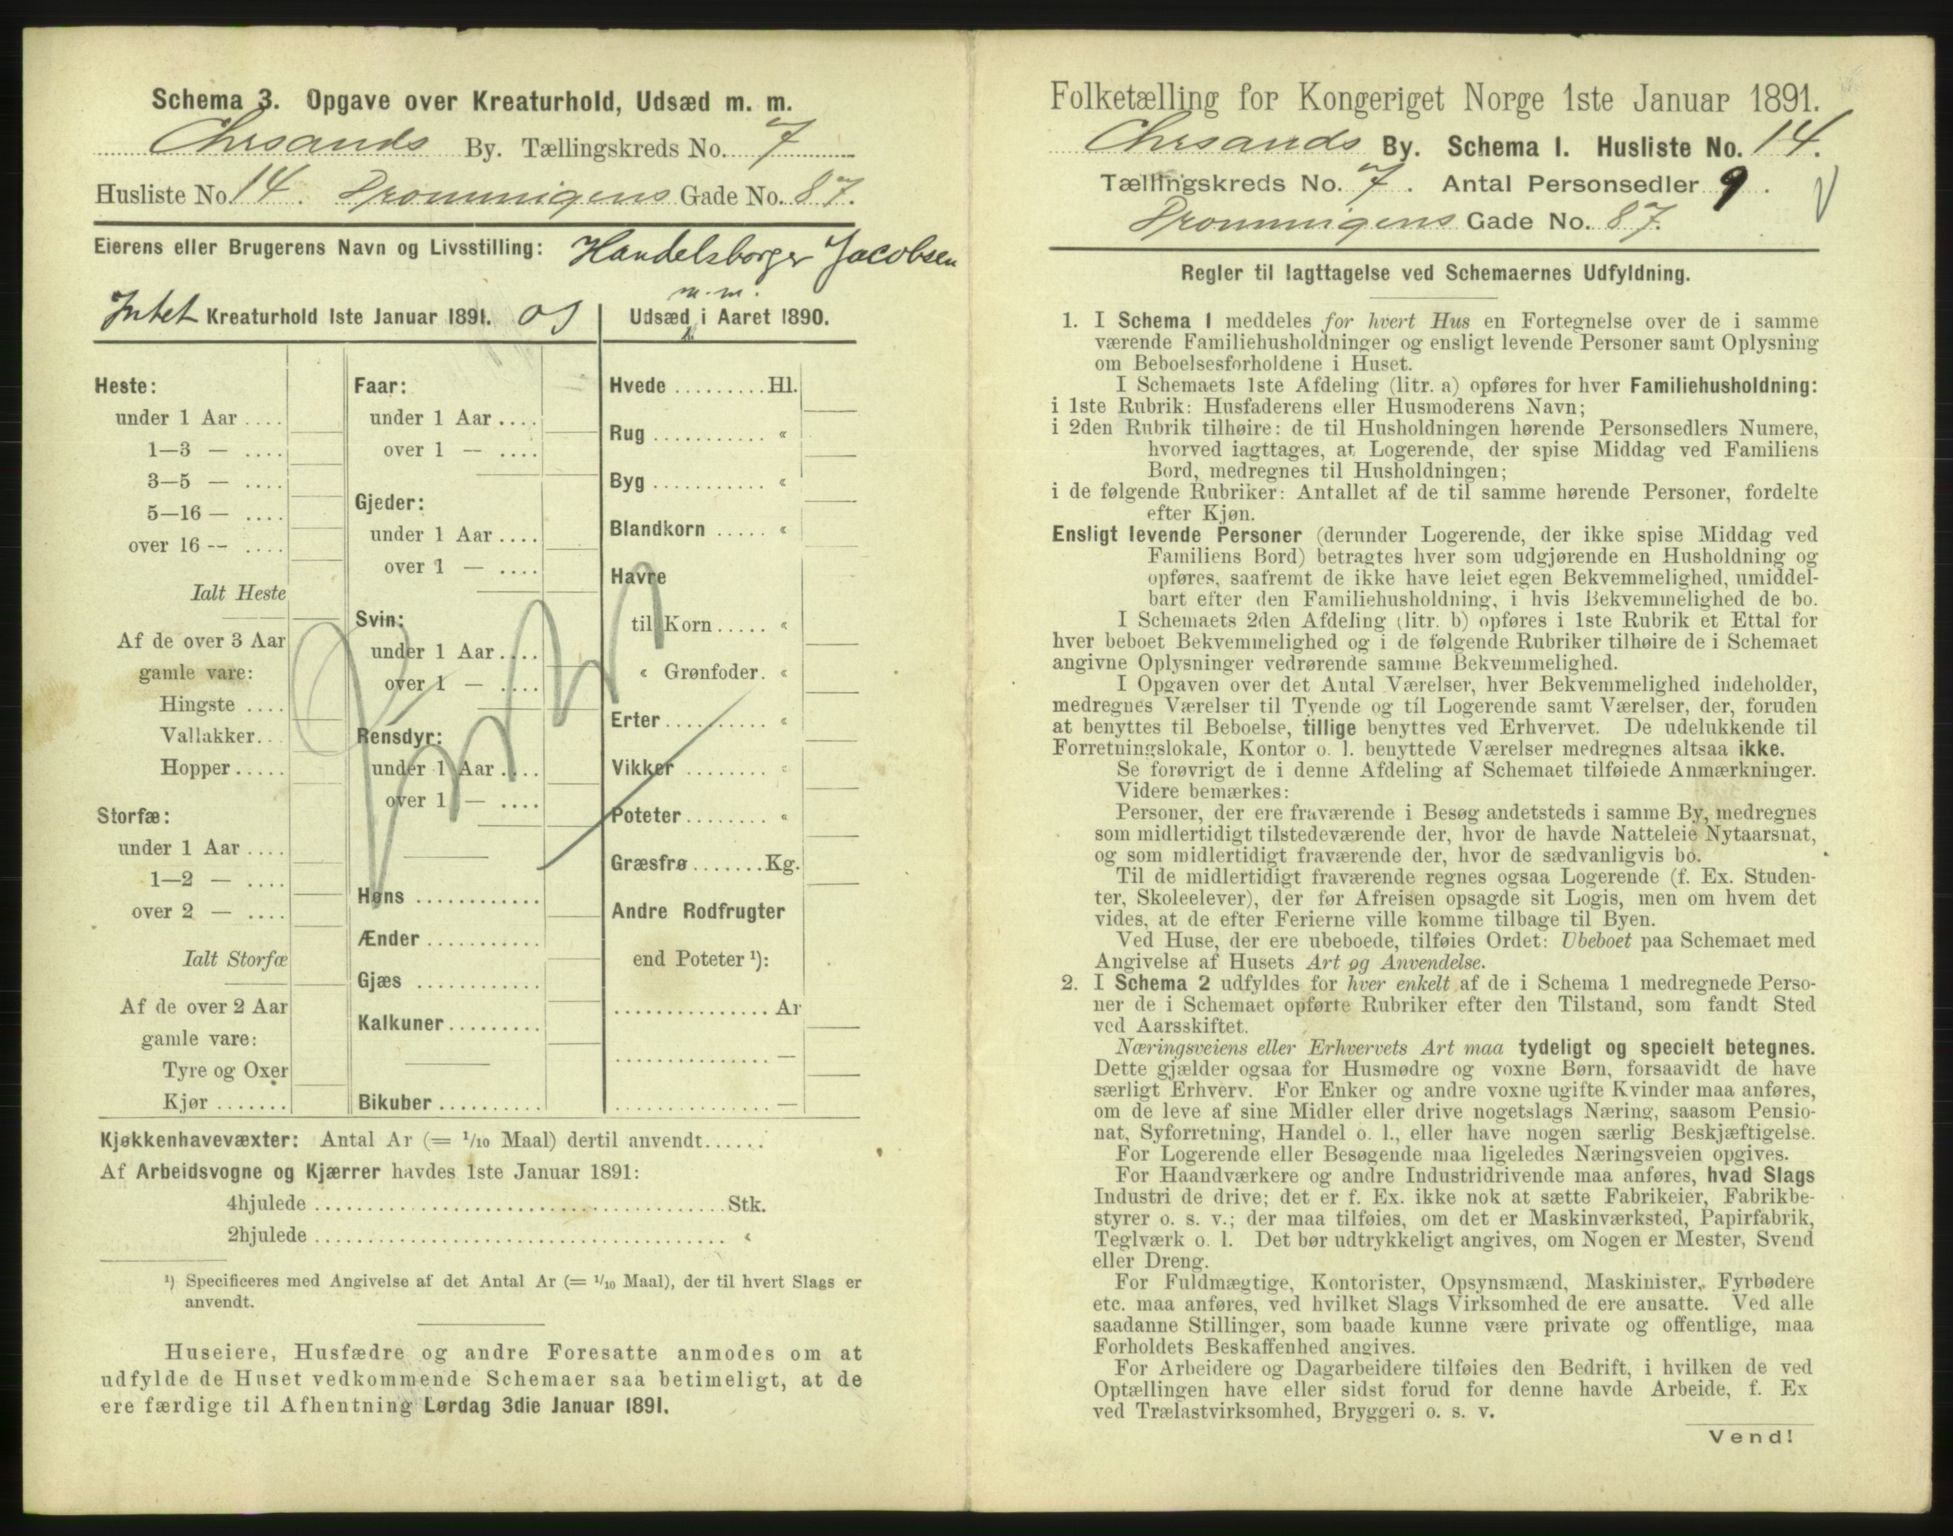 Schema 3. Opgave over Kreaturhold, Udsæd m. m.
Chrsands By. Tællingskreds No. 7
Husliste No. 14. Dronningens Gade No. 87.
Eierens eller Brugerens Navn og Livsstilling: Handelsborger Jacobsen
Intet Kreaturhold 1ste Januar 1891. og
m. m.
Udsæd i Aaret 1890.
Heste:
under 1 Aar ....
1—3 — ....
3—5 — ....
5—16 — ....
over 16 -- ....
Ialt Heste
Af de over 3 Aar
gamle vare:
Hingste ....
Vallakker. .
Hopper .....
Storfæ:
under 1 Aar ....
1—2 — ....
over 2 — ....
Ialt Storfæ
Af de over 2 Aar
gamle vare:
Tyre og Oxer
Kjør .......
Faar:
under 1 Aar ....
over 1 — ....
Gjeder:
under 1 Aar ....
over 1 — ....
Svin:
under 1 Aar ....
over 1 — ....
Rensdyr:
under 1 Aar ....
over 1 — ....
Høns ............
Ænder ...........
Gjæs ............
Kalkuner.........
Bikuber ..........
Hvede ......... Hl.
Rug ........... «
Byg ........... «
Blandkorn ..... «
Havre
til Korn ..... «
« Grønfoder. «
Erter .......... «
Vikker ........ «
Poteter ........ «
Græsfrø ....... Kg.
Andre Rodfrugter
end Poteter ¹):
............... Ar
............... —
............... —
Kjøkkenhavevæxter: Antal Ar (= 1/10 Maal) dertil anvendt......
Af Arbeidsvogne og Kjærrer havdes 1ste Januar 1891:
4hjulede ........................................ Stk.
2hjulede ........................................ «
¹) Specificeres med Angivelse af det Antal Ar (= 1/10 Maal), der til hvert Slags er
anvendt.
Huseiere, Husfædre og andre Foresatte anmodes om at
udfylde de Huset vedkommende Schemaer saa betimeligt, at de
ere færdige til Afhentning Lørdag 3die Januar 1891.
Folketælling for Kongeriget Norge 1ste Januar 1891.
Chrsands By. Schema I. Husliste No. 14.
Tællingskreds No. 7. Antal Personsedler 9.
Dronningens Gade No. 87.
Regler til Iagttagelse ved Schemaernes Udfyldning.
1. I Schema I meddeles for hvert Hus en Fortegnelse over de i samme
værende Familiehusholdninger og ensligt levende Personer samt Oplysning
om Beboelsesforholdene i Huset.
I Schemaets 1ste Afdeling (litr. a) opføres for hver Familiehusholdning:
i 1ste Rubrik: Husfaderens eller Husmoderens Navn;
i 2den Rubrik tilhøire: de til Husholdningen hørende Personsedlers Numere,
hvorved iagttages, at Logerende, der spise Middag ved Familiens
Bord, medregnes til Husholdningen;
i de følgende Rubriker: Antallet af de til samme hørende Personer, fordelte
efter Kjøn.
Ensligt levende Personer (derunder Logerende, der ikke spise Middag ved
Familiens Bord) betragtes hver som udgjørende en Husholdning og
opføres, saafremt de ikke have leiet egen Bekvemmelighed, umiddel-
bart efter den Familiehusholdning, i hvis Bekvemmelighed de bo.
I Schemaets 2den Afdeling (litr. b) opføres i 1ste Rubrik et Ettal for
hver beboet Bekvemmelighed og i de følgende Rubriker tilhøire de i Schemaet
angivne Oplysninger vedrørende samme Bekvemmelighed.
I Opgaven over det Antal Værelser, hver Bekvemmelighed indeholder,
medregnes Værelser til Tyende og til Logerende samt Værelser, der, foruden
at benyttes til Beboelse, tillige benyttes ved Erhvervet. De udelukkende til
Forretningslokale, Kontor o. l. benyttede Værelser medregnes altsaa ikke.
Se forøvrigt de i denne Afdeling af Schemaet tilføiede Anmærkninger.
Videre bemærkes:
Personer, der ere fraværende i Besøg andetsteds i samme By, medregnes
som midlertidigt tilstedeværende der, hvor de havde Natteleie Nytaarsnat,
og som midlertidigt fraværende der, hvor de sædvanligvis bo.
Til de midlertidigt fraværende regnes ogsaa Logerende (f. Ex. Studen-
ter, Skoleelever), der før Afreisen opsagde sit Logis, men om hvem det
vides, at de efter Ferierne ville komme tilbage til Byen.
Ved Huse, der ere ubeboede, tilføies Ordet: Ubeboet paa Schemaet med
Angivelse af Husets Art og Anvendelse.
2. I Schema 2 udfyldes for hver enkelt af de i Schema 1 medregnede Perso-
ner de i Schemaet opførte Rubriker efter den Tilstand, som fandt Sted
ved Aarsskiftet.
Næringsveiens eller Erhvervets Art maa tydeligt og specielt betegnes.
Dette gjælder ogsaa for Husmødre og voxne Børn, forsaavidt de have
særligt Erhverv. For Enker og andre voxne ugifte Kvinder maa anføres,
om de leve af sine Midler eller drive nogetslags Næring, saasom Pensio-
nat, Syforretning, Handel o. l., eller have nogen særlig Beskjæftigelse.
For Logerende eller Besøgende maa ligeledes Næringsveien opgives.
For Haandværkere og andre Industridrivende maa anføres, hvad Slags
Industri de drive; det er f. Ex. ikke nok at sætte Fabrikeier, Fabrikbe-
styrer o. s. v.; der maa tilføies, om det er Maskinværksted, Papirfabrik,
Teglværk o. l. Det bør udtrykkeligt angives, om Nogen er Mester, Svend
eller Dreng.
For Fuldmægtige, Kontorister, Opsynsmænd, Maskinister, Fyrbødere
etc. maa anføres, ved hvilket Slags Virksomhed de ere ansatte. Ved alle
saadanne Stillinger, som baade kunne være private og offentlige, maa
Forholdets Beskaffenhed angives.
For Arbeidere og Dagarbeidere tilføies den Bedrift, i hvilken de ved
Optællingen have eller sidst forud for denne havde Arbeide, f. Ex
ved Trælastvirksomhed, Bryggeri o. s. v.
Vend!